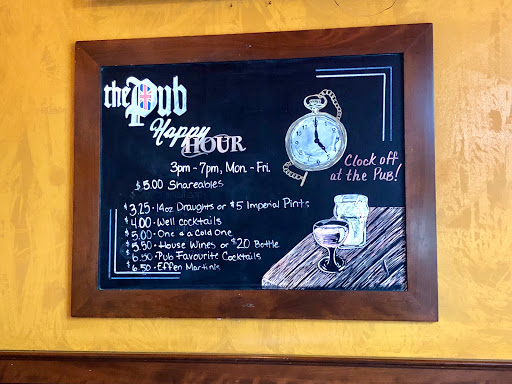 the Pub
Happy
HOUR
3pm - 7pm, Mon. - Fri.
$5.00 Shareables
$3.25 - 14oz Draughts or $5 Imperial Pints
$4.00 - Well cocktails
$5.00 - One & a Cold One
$5.50 - House Wines or $20 Bottle
$6.50 - Pub Favourite Cocktails
$6.50 - Effen Martinis
Clock off
at the Pub!